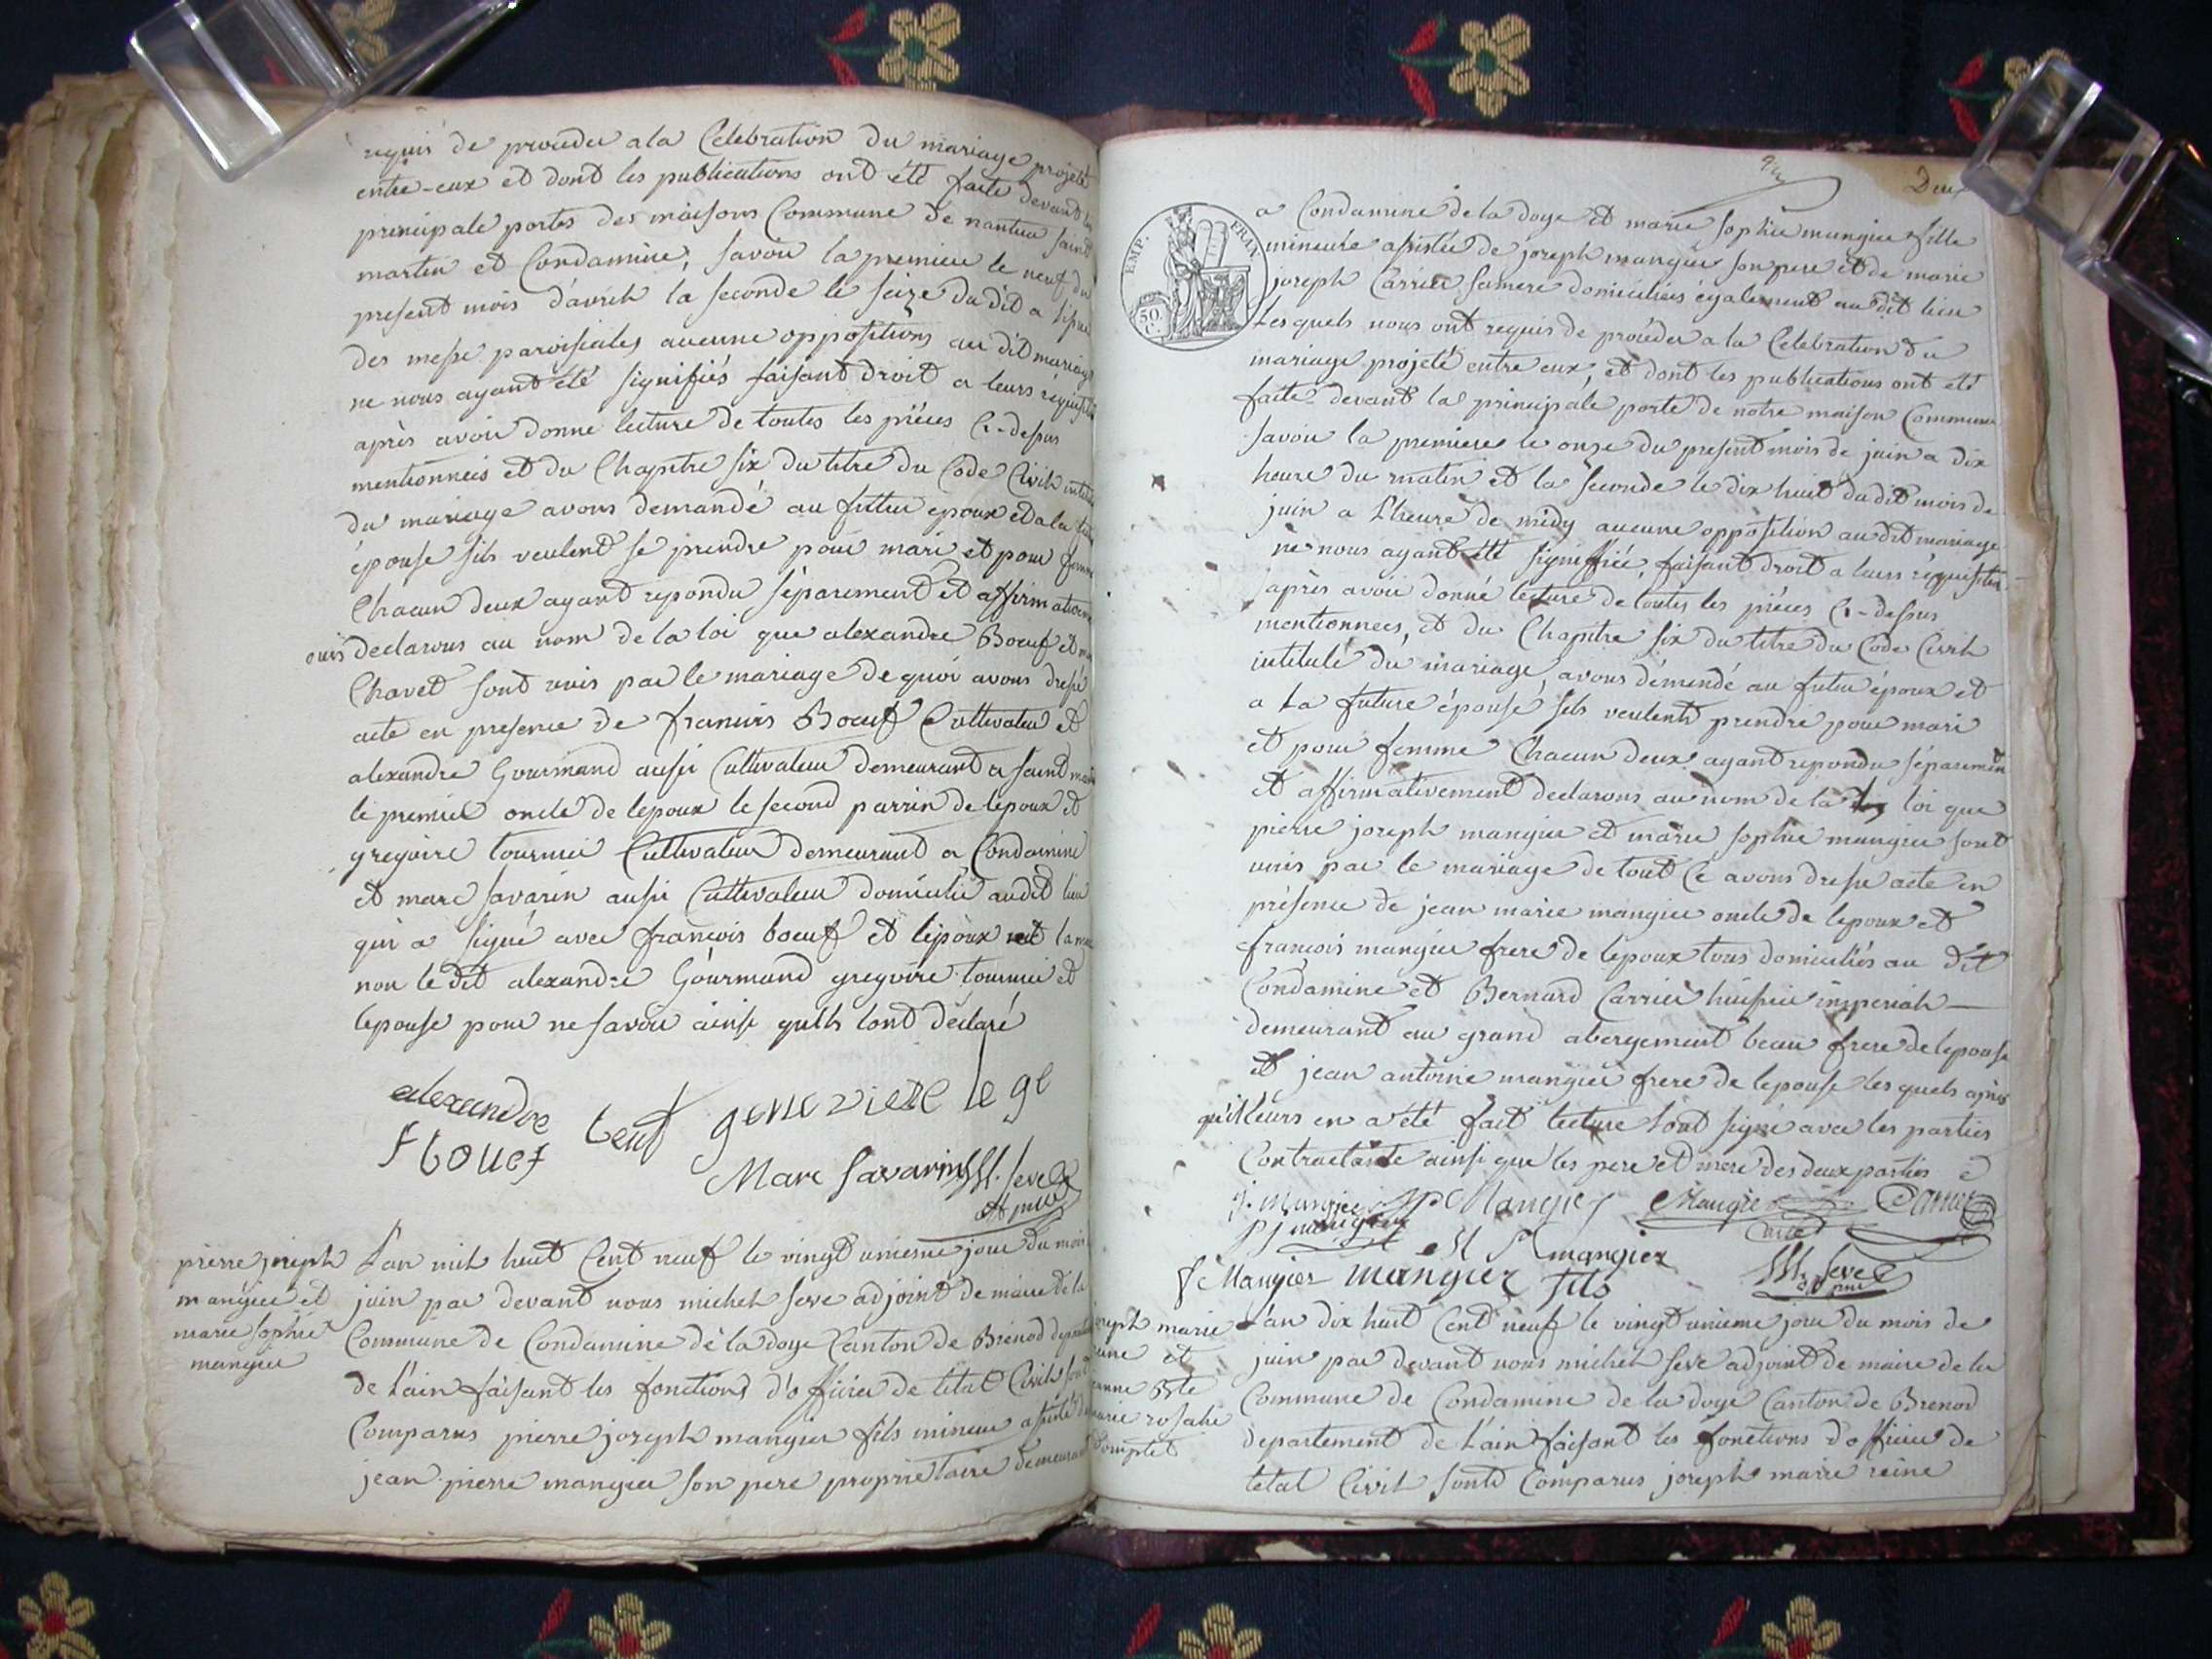 requis de proceder a la Celebration du mariage projeté
entre-eux et dont les publications ont été faite devant les
principale portes des maisons Commune de nantua saint
martin et Condamine, savoir la premiere le neuf du
present mois d'avril la seconde le seize du dit a l'issue
des messe paroissiales aucune oppositions au dit mariage
ne nous ayant été signifiés faisant droit a leurs réquisition
après avoir donné lecture de toutes les pièces Ci-dessus
mentionnées et du Chapitre six du titre du Code Civil intitulé
du mariage avons demandé au futur epoux et a la future
épouse sils veulent se prendre pour mari et pour femme
Chacun deux ayant repondu séparement et affirmativement
ouis declarons au nom de la loi que alexandre Boeuf et
Chavet sont unis par le mariage de quoi avons dressé
acte en presence de francois Boeuf Cultivateur et
alexandre Gourmand aussi Cultivateur demeurant a saint martin
le premier oncle de lepoux le second parrin de lepoux et
gregoire tournier Cultivateur demeurant a Condamine
et marc savarin aussi Cultivateur domicilié audit lieu
qui a signé avec francois boeuf et lépoux
non le dit alexandre Gourmand gregoire tournier et
lepouse pour ne savoir ainsi quils lont déclaré
alexandre beuf genevieve
f bouef
Marc Savarin M. Seve
pierre joseph
mangier et
marie sophie
mangier
L'an mil huit Cent neuf le vingt unieme jour du mois
juin par devant nous michel seve adjoint de maire de la
Commune de Condamine de la doye Canton de Brenod departement
de L'ain faisant les fonctions d'officier de létat Civil sont
Comparus pierre joseph mangier fils mineur assisté de
jean pierre mangier son pere proprietaire demeurant
Deux
EMP. FRAN.
50 C.
a Condamine de la doye et marie sophie mangier fille
mineure assistée de joseph mangier son pere et de marie
joseph Carrier sa mere domiciliées également au dit lieu
Lesquels nous ont requis de procéder a la Celebration du
mariage projeté entre eux, et dont les publications ont été
faite devant la principale porte de notre maison Commune
savoir la premiere le onze du present mois de juin a dix
heure du matin et la seconde le dix huit du dit mois de
juin a L'heure de midy aucune opposition audit mariage
ne nous ayant été signifiée, faisant droit a leurs réquisition
après avoir donné lecture de toutes les pièces Ci-dessus
mentionnees, et du Chapitre six du titre du Code Civil
intitulé du mariage, avons démendé au futur époux et
a La future épouse sils veulent prendre pour mari
et pour femme Chacun deux ayant repondu séparement
et affirmativement declarons au nom de la loi que
pierre joseph mangier et marie sophie mangier sont
unis par le mariage de tout Ce avons dressé acte en
présence de jean marie mangier oncle de lepoux et
francois mangier frere de lepoux tous domiciliés au dit
Condamine et Bernard Carrier huissier imperial
demeurant au grand abergement beau frere de lepouse
et jean antoine mangier frere de lepouse lesquels après
qu'il leurs en a été fait lecture lont signé avec les parties
Contractante ainsi que les pere et mere des deux parties
j. Mangier Mangier Mangier Carrier
P j mangier
M S mangier
F Mangier mangier fils M. Seve
joseph marie
reine et
jeanne Bte
marie rosalie
L'an dix huit Cent neuf le vingt unieme jour du mois de
juin par devant nous michel seve adjoint de maire de la
Commune de Condamine de la doye Canton de Brenod
departement de L'ain faisant les fonctions d'officier de
létat Civil sont Comparus joseph marie reine